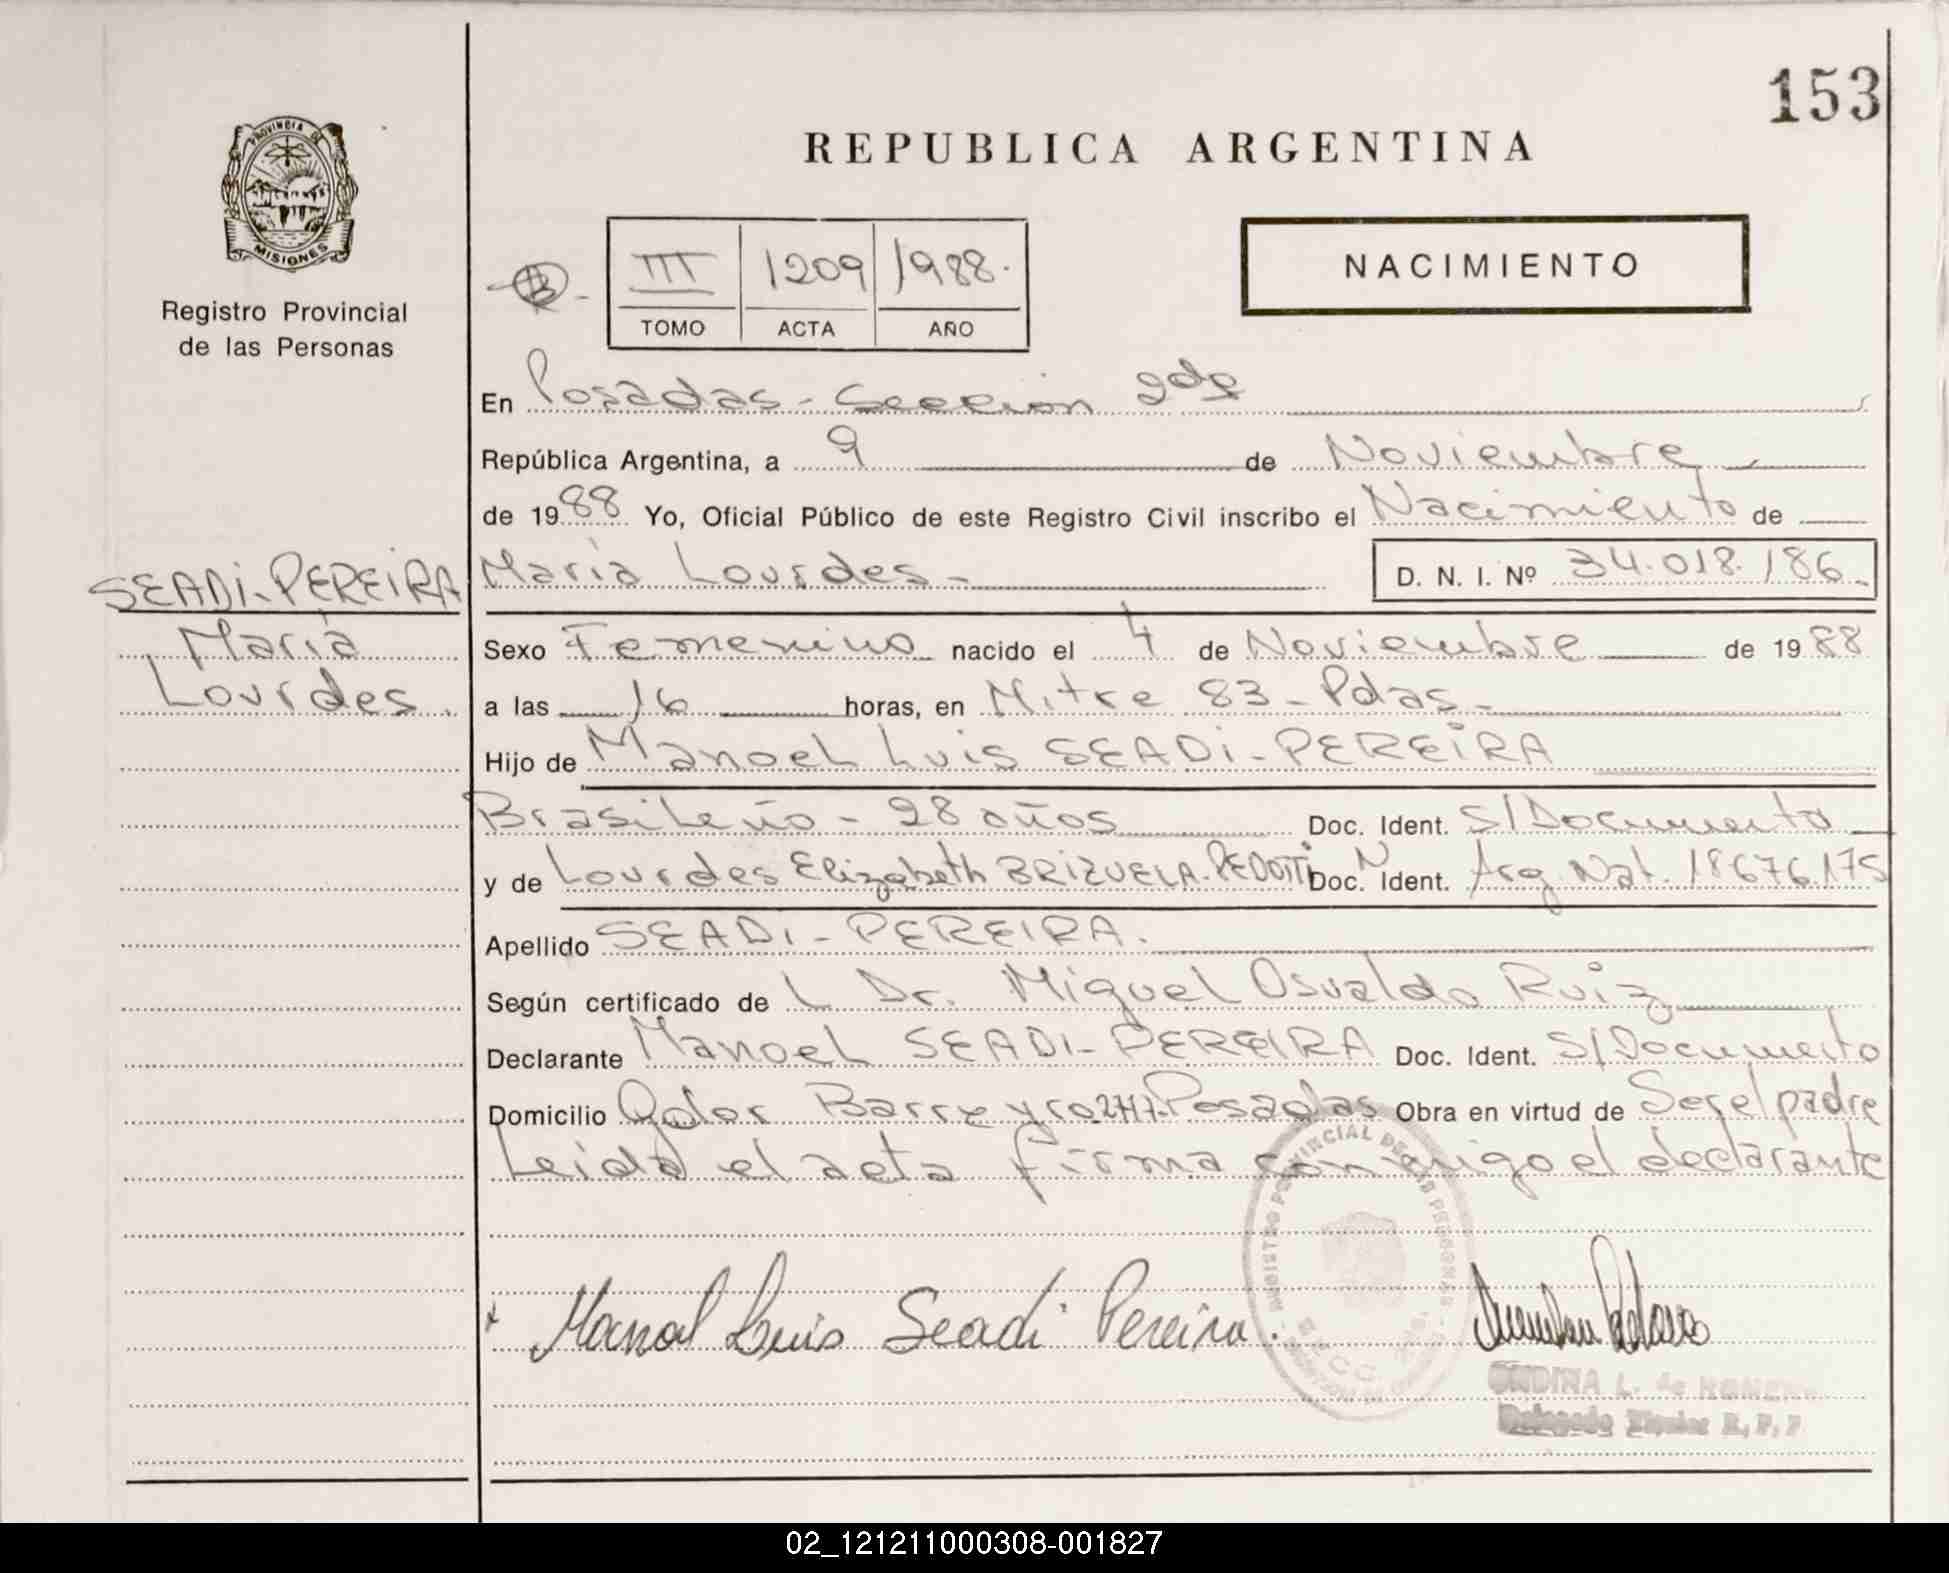 153
REPUBLICA ARGENTINA
PROVINCIA DE
MISIONES
Registro Provincial
de las Personas
III 1209 1988.
TOMO ACTA AÑO
NACIMIENTO
En Posadas - Sección 2da
República Argentina, a 9 de Noviembre
de 1988 Yo, Oficial Público de este Registro Civil inscribo el Nacimiento de
María Lourdes - D. N. I. Nº 34.018.186.
SEADI-PEREIRA
María
Lourdes.
Sexo Femenino nacido el 4 de Noviembre de 1988
a las 16 horas, en Mitre 83 - Pdas -
Hijo de Manoel Luis SEADI-PEREIRA
Brasileño - 28 años Doc. Ident. S/Documento
y de Lourdes Elizabeth BRIZUELA-PEDOTTI Doc. Ident. Arg. Nat. 18676.175
Apellido SEADI-PEREIRA.
Según certificado de L Dr. Miguel Osvaldo Ruiz
Declarante Manoel SEADI-PEREIRA Doc. Ident. S/Documento
Domicilio Barreyro Posadas Obra en virtud de Ser el padre
Leida el acta firma conmigo el declarante
REGISTRO PROVINCIAL DE LAS PERSONAS
Manoel Luis Seadi Pereira.
ONDINA L. de
R. P. P
02_121211000308-001827